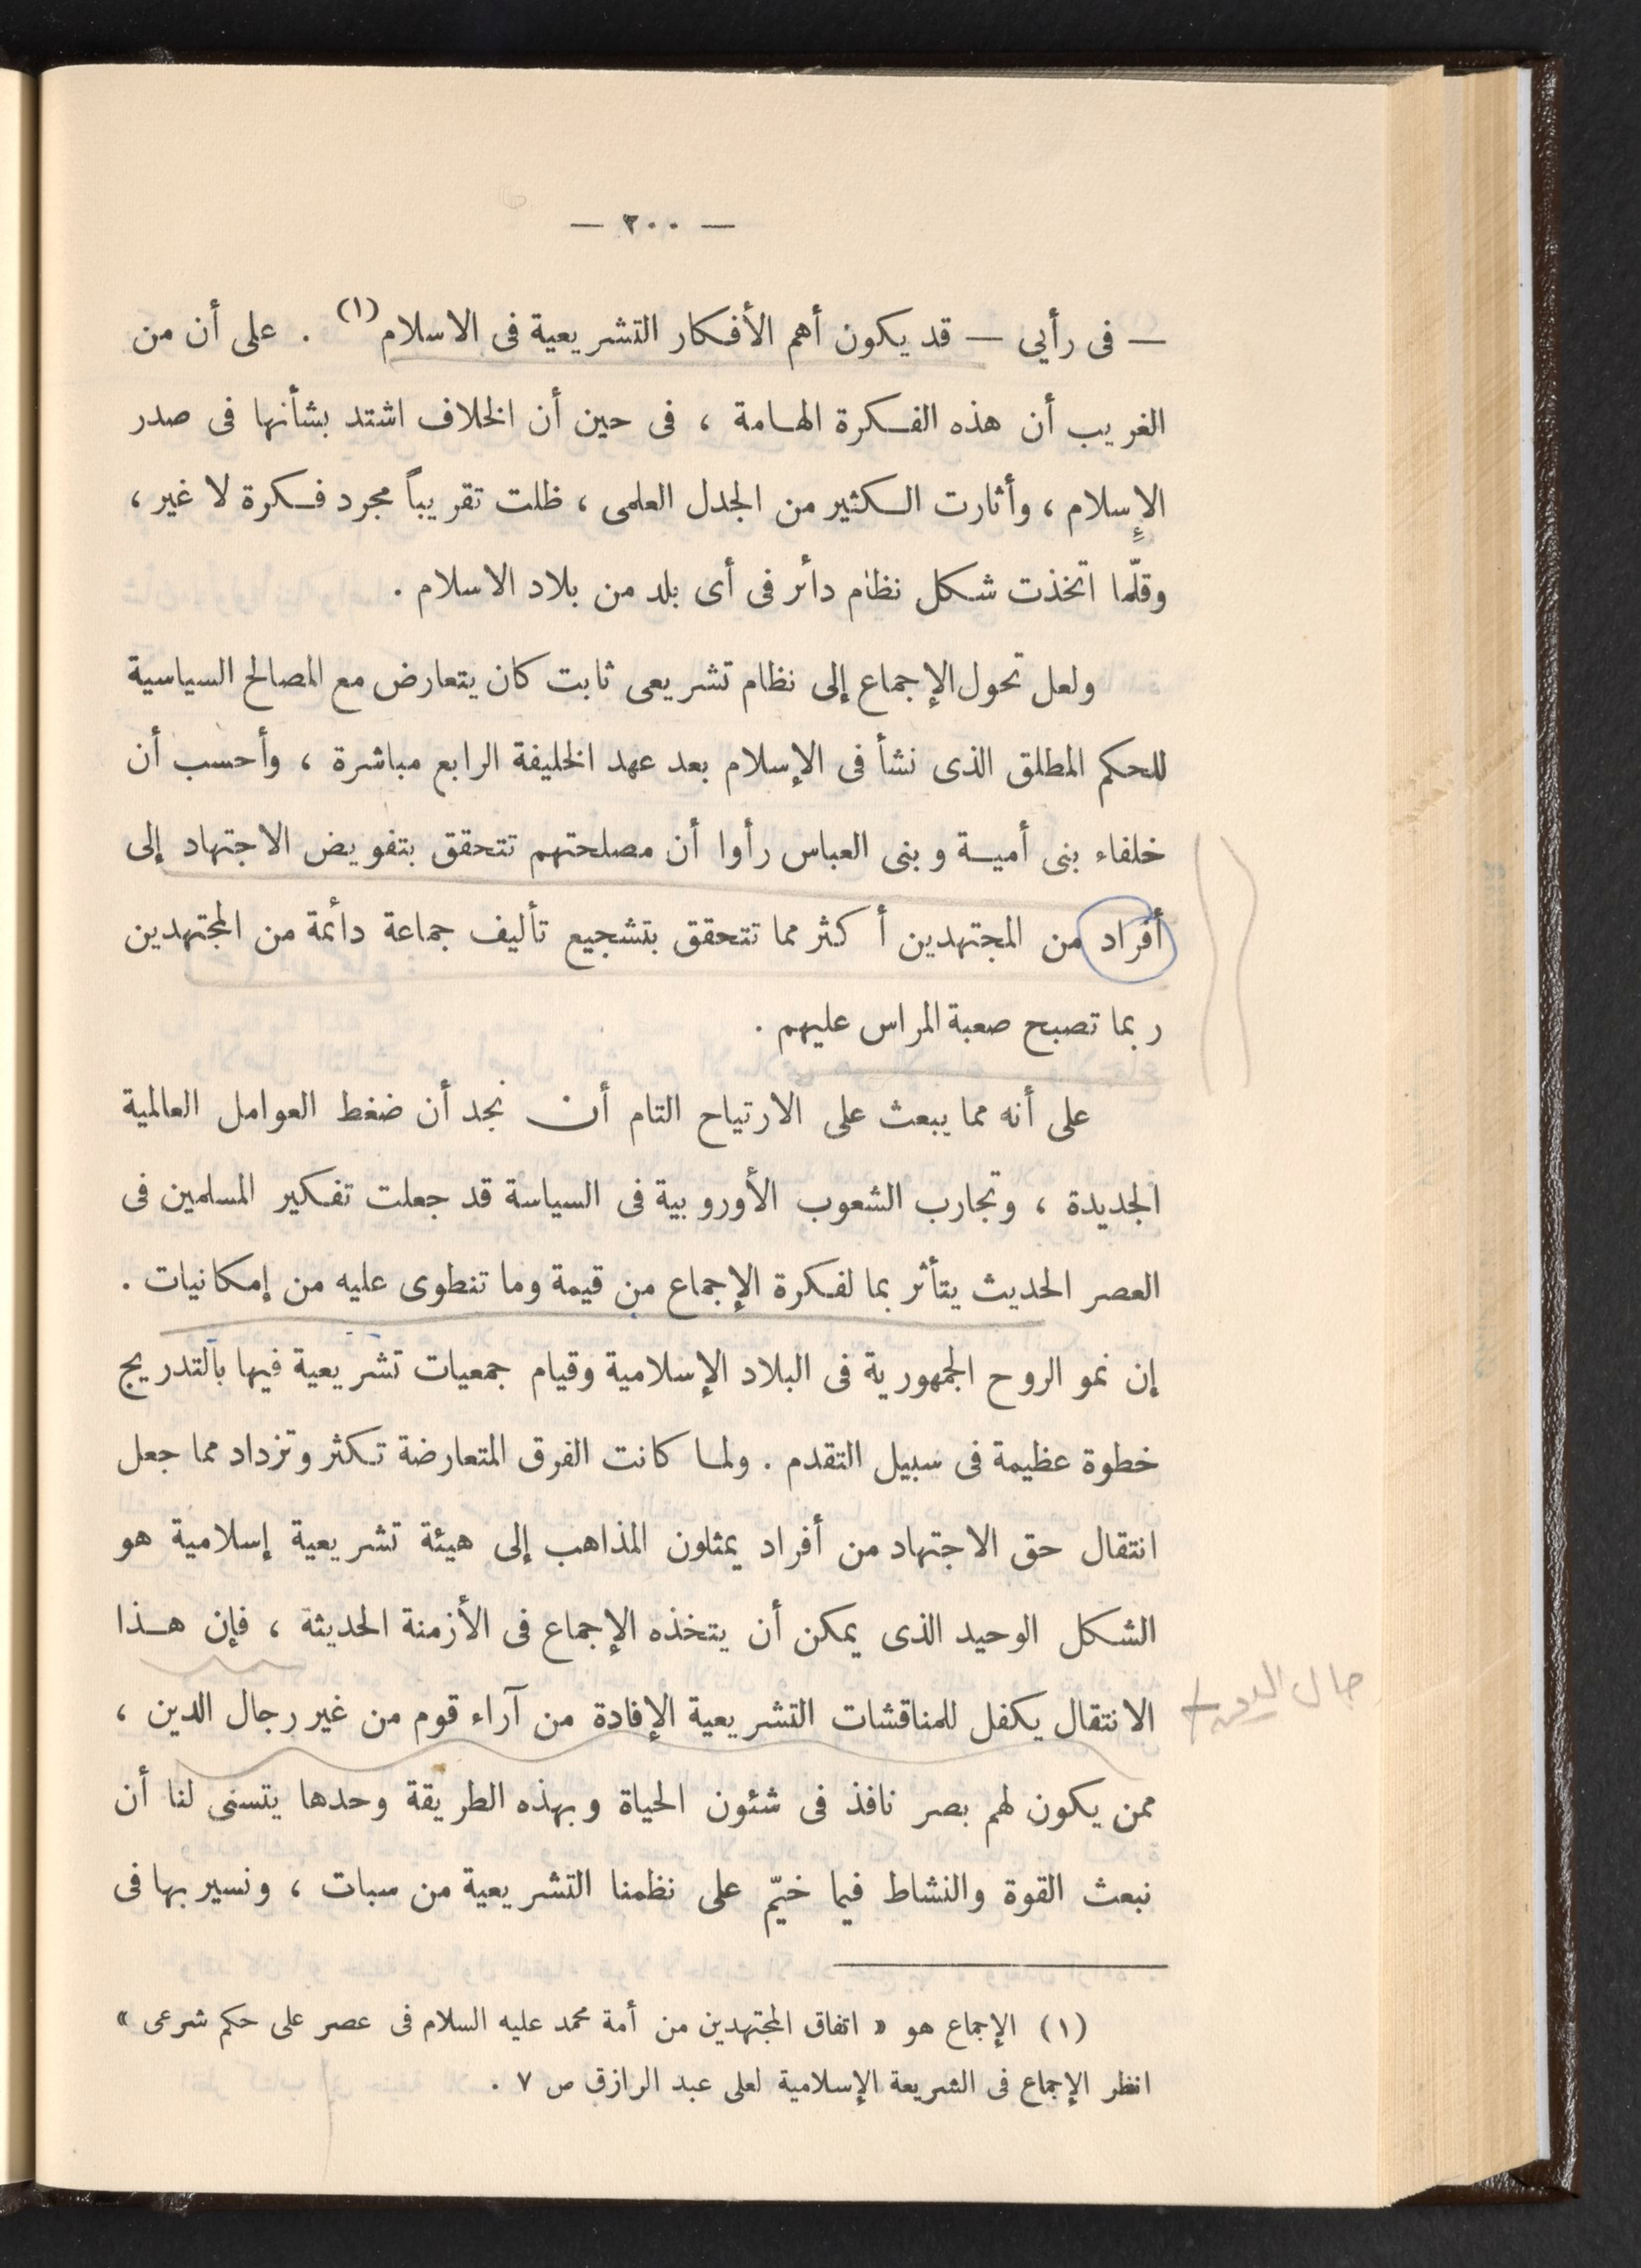 — ٢٠٠ —
— فى رأيى — قد يكون أهم الأفكار التشريعية فى الاسلام (١) . على أن من
الغريب أن هذه الفكرة الهامة ، فى حين أن الخلاف اشتد بشأنها فى صدر
الإسلام ، وأثارت الكثير من الجدل العلمى ، ظلت تقريباً مجرد فكرة لا غير ،
وقلّما اتخذت شكل نظام دائر فى أى بلد من بلاد الاسلام .
ولعل تحول الإجماع إلى نظام تشريعى ثابت كان يتعارض مع المصالح السياسية
للحكم المطلق الذى نشأ فى الإسلام بعد عهد الخليفة الرابع مباشرة ، وأحسب أن
خلفاء بنى أمية وبنى العباس رأوا أن مصلحتهم تتحقق بتفويض الاجتهاد إلى
أفراد من المجتهدين أكثر مما تتحقق بتشجيع تأليف جماعة دائمة من المجتهدين
ربما تصبح صعبة المراس عليهم .
على أنه مما يبعث على الارتياح التام أن نجد أن ضغط العوامل العالمية
الجديدة ، وتجارب الشعوب الأوروبية فى السياسة قد جعلت تفكير المسلمين فى
العصر الحديث يتأثر بما لفكرة الإجماع من قيمة وما تنطوى عليه من إمكانيات .
إن نمو الروح الجمهورية فى البلاد الإسلامية وقيام جمعيات تشريعية فيها بالتدريج
خطوة عظيمة فى سبيل التقدم . ولما كانت الفرق المتعارضة تكثر وتزداد مما جعل
انتقال حق الاجتهاد من أفراد يمثلون المذاهب إلى هيئة تشريعية إسلامية هو
الشكل الوحيد الذى يمكن أن يتخذه الإجماع فى الأزمنة الحديثة ، فإن هذا
الانتقال يكفل للمناقشات التشريعية الإفادة من آراء قوم من غير رجال الدين ،
رجال الدين
ممن يكون لهم بصر نافذ فى شئون الحياة وبهذه الطريقة وحدها يتسنى لنا أن
نبعث القوة والنشاط فيما خيّم على نظمنا التشريعية من سبات ، ونسير بها فى
(١) الإجماع هو « اتفاق المجتهدين من أمة محمد عليه السلام فى عصر على حكم شرعى »
انظر الإجماع فى الشريعة الإسلامية لعلى عبد الرازق ص ٧ .